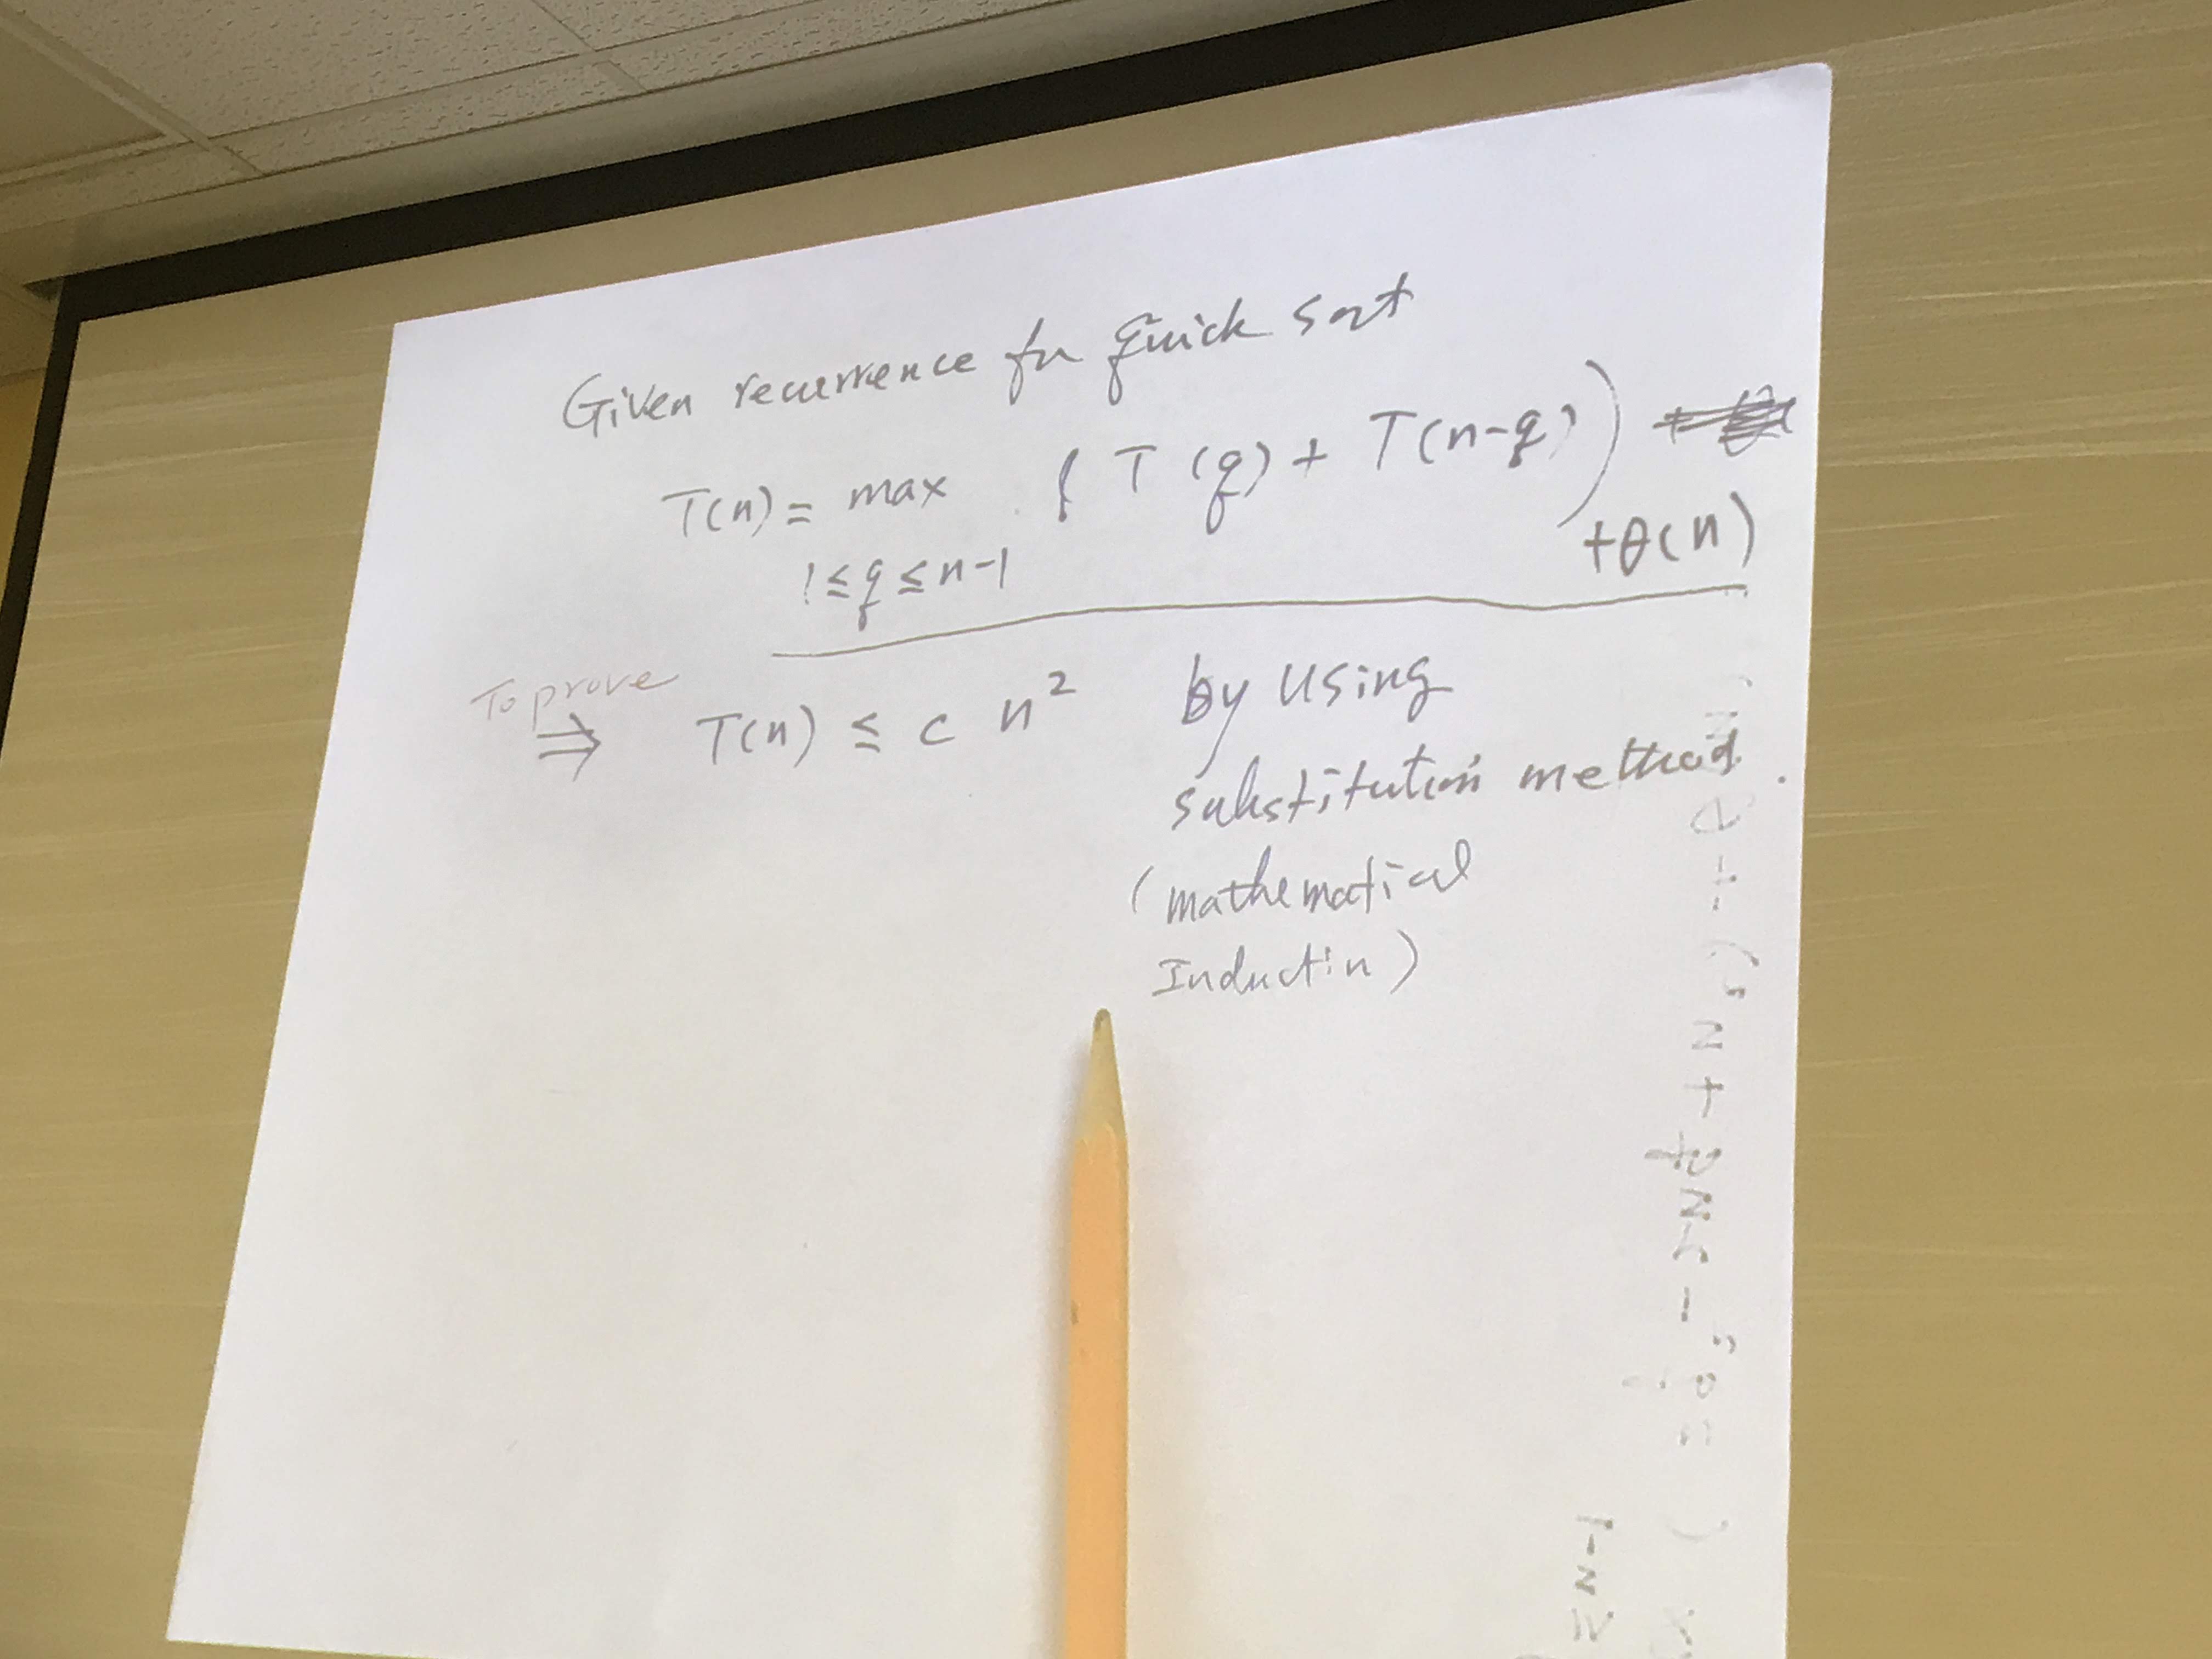 Given recurrence for quick sort
T(n) = max ( T(q) + T(n-q) )
1≤q≤n-1 +θ(n)
To prove
⇒ T(n) ≤ c n² by using
substitution method.
(mathematical
Inductin)